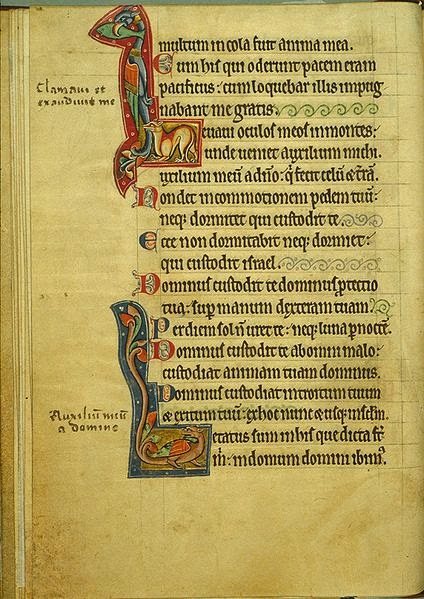 multum incola fuit anima mea.
Cum his qui oderunt pacem eram
pacificus: cum loquebar illis impug
nabant me gratis.
Clamavi et
exaudivit me
Levavi oculos meos in montes:
unde veniet auxilium michi.
Auxilium meū a dn̄o: q̄ fecit celū & t̄rā.
Non det in commotionem pedem tuū:
neq; dormitet qui custodit te.
Ecce non dormitabit neq; dormiet:
qui custodit israel.
Dominus custodit te dominus p̱tectio
tua: sup̱ manum dexteram tuam.
Per diem sol n̄ uret te: neq; luna p̱ noctē.
Dominus custodit te ab omni malo:
custodiat animam tuam dominus.
Dominus custodiat introitum tuum
& exitum tuū: ex hoc nunc & usq; in sc̄lm.
Auxiliū meū
a domino
Letatus sum in his que dicta st̄
m̄: in domum domini ibimꝰ.